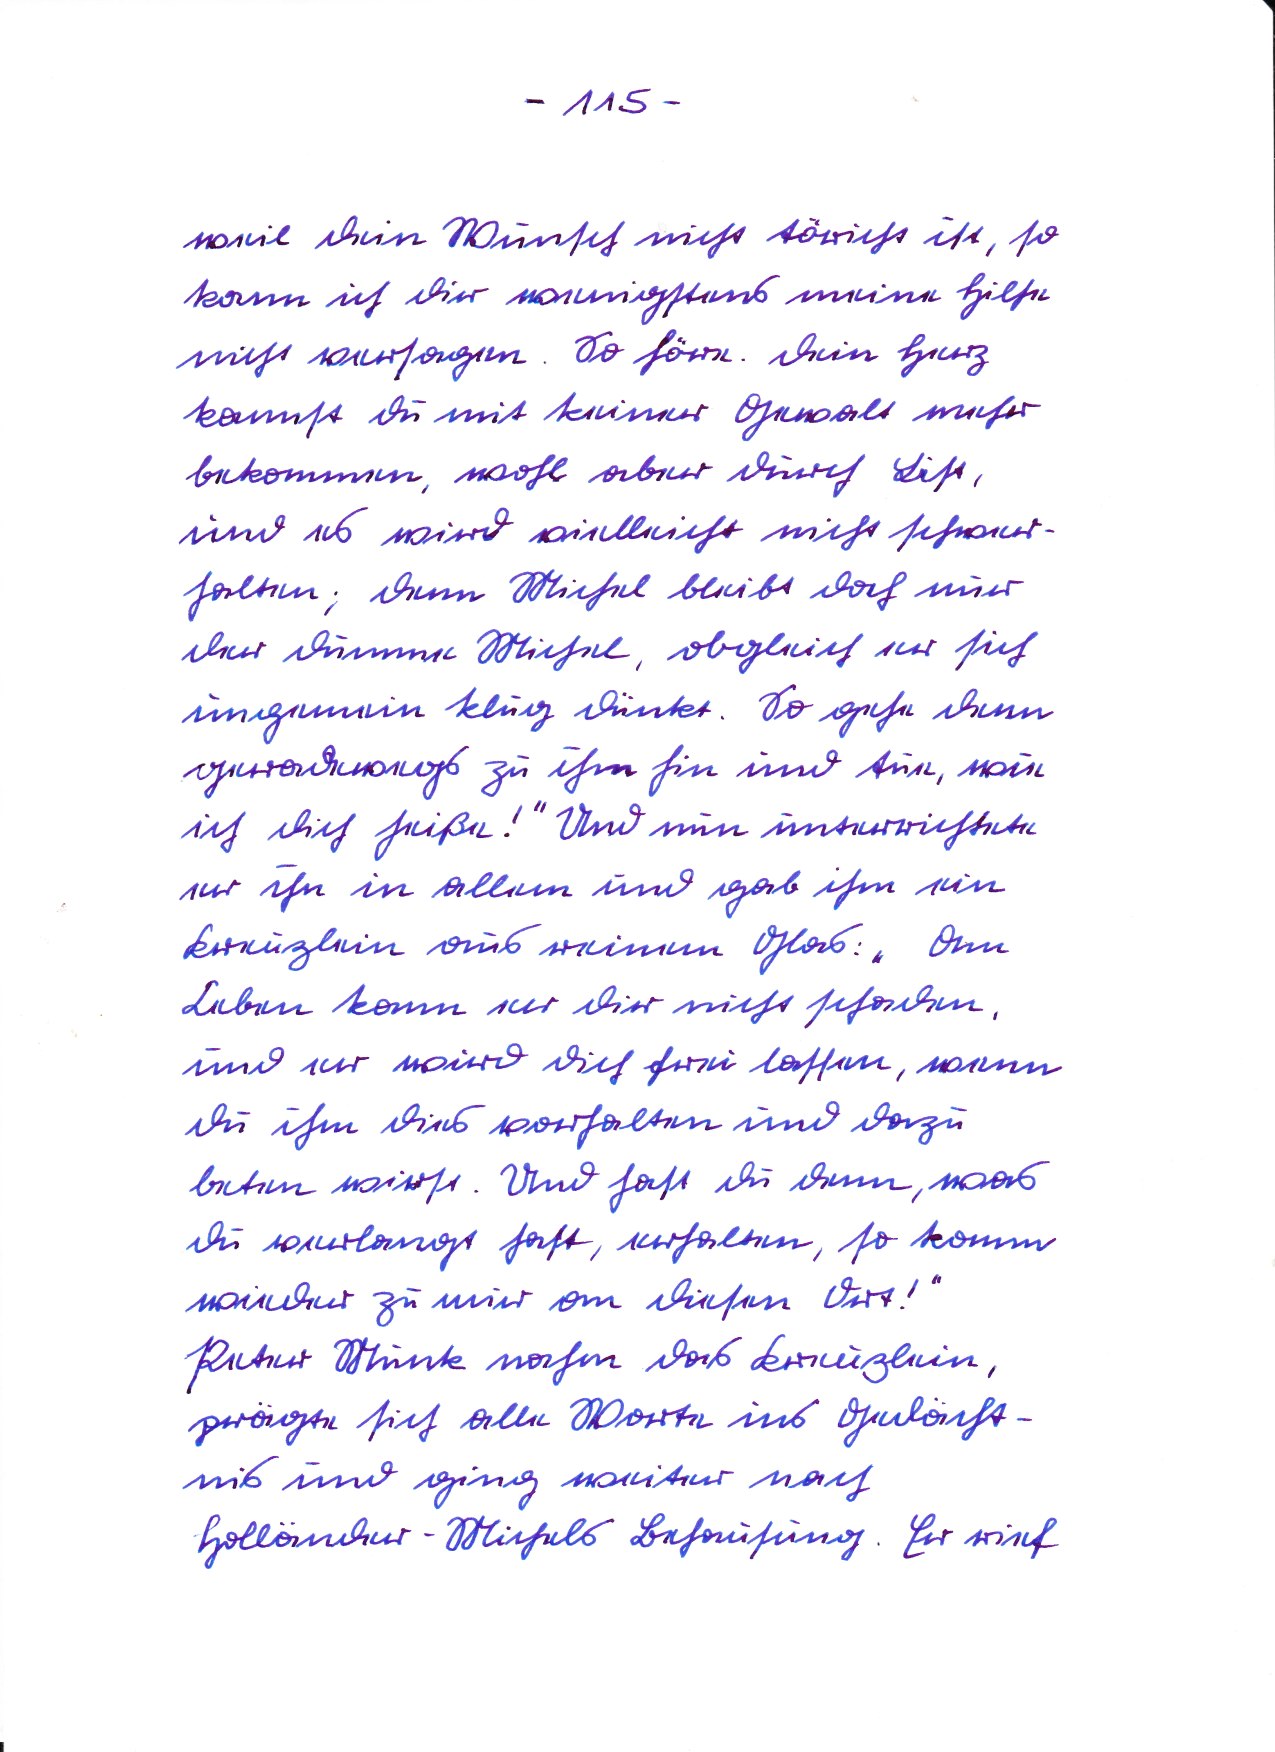 - 115 -
weil dein Wunsch nicht töricht ist, so
kann ich dir wenigstens meine Hilfe
nicht versagen. So höre. Dein Herz
kannst du mit keiner Gewalt mehr
bekommen, wohl aber durch List,
und es wird vielleicht nicht schwer-
halten; denn Michel bleibt doch nur
der dumme Michel, obgleich er sich
ungemein klug dünkt. So gehe denn
geradewegs zu ihm hin und tue, wie
ich dich heiße!" Und nun unterrichtete
er ihn in allem und gab ihm ein
Kreuzlein aus reinem Glas: „Am
Leben kann er dir nicht schaden,
und er wird dich frei lassen, wenn
du ihm dies vorhalten und dazu
beten wirst. Und hast du denn, was
du verlangt hast, erhalten, so komm
wieder zu mir an diesen Ort!"
Peter Munk nahm das Kreuzlein,
prägte sich alle Worte ins Gedächt-
nis und ging weiter nach
Holländer-Michels Behausung. Er rief